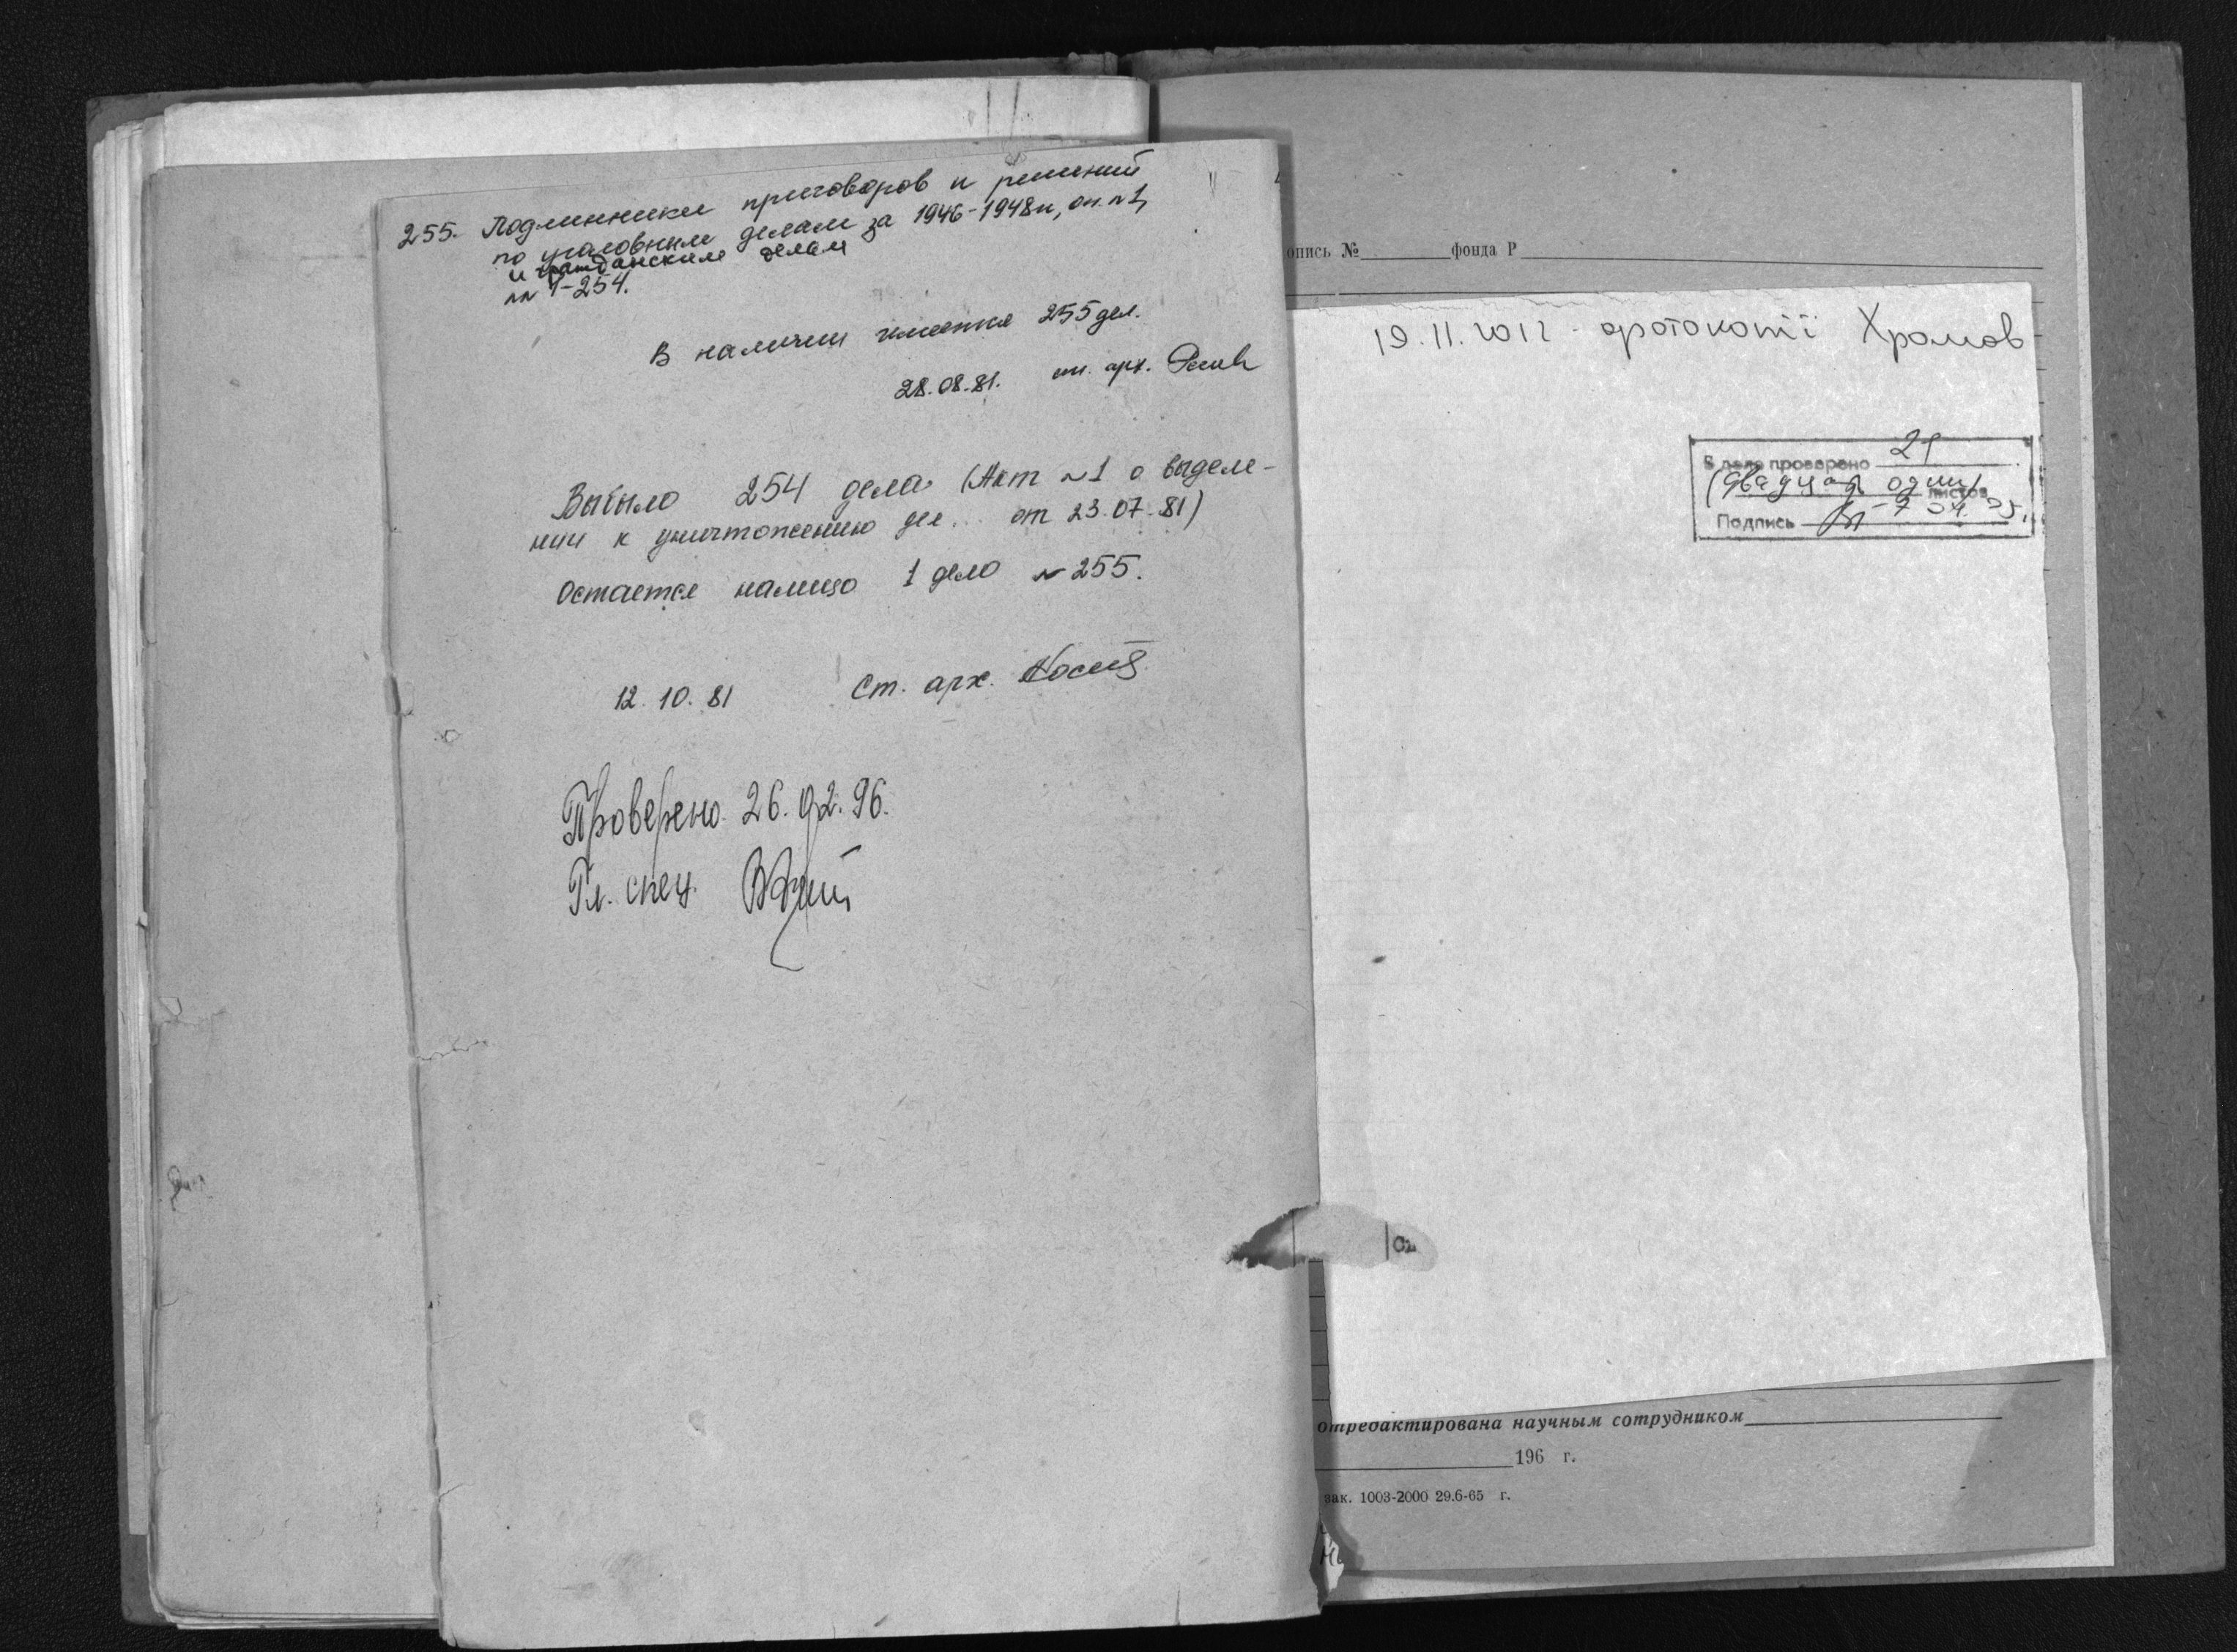 255. Подлинники приговоров и решений
по уголовным делам за 1946-1948гг, оп. №1,
и гражданским делам
№№ 1-254.
В наличии имеется 255 дел.
28.08.81. ст. арх.
Выбыло 254 дела (Акт №1 о выделе-
нии к уничтожению дел... от 23.07.81)
Остается налицо 1 дело №255.
12.10.81 Ст. арх.
Проверено 26.02.96.
Гл. спец.
опись № фонда Р
19.11.2012 - фотокопії Храмов
В деле проверено 21
(двадцать один) листов
Подпись
отредактирована научным сотрудником
196 г.
зак. 1003-2000 29.6-65 г.